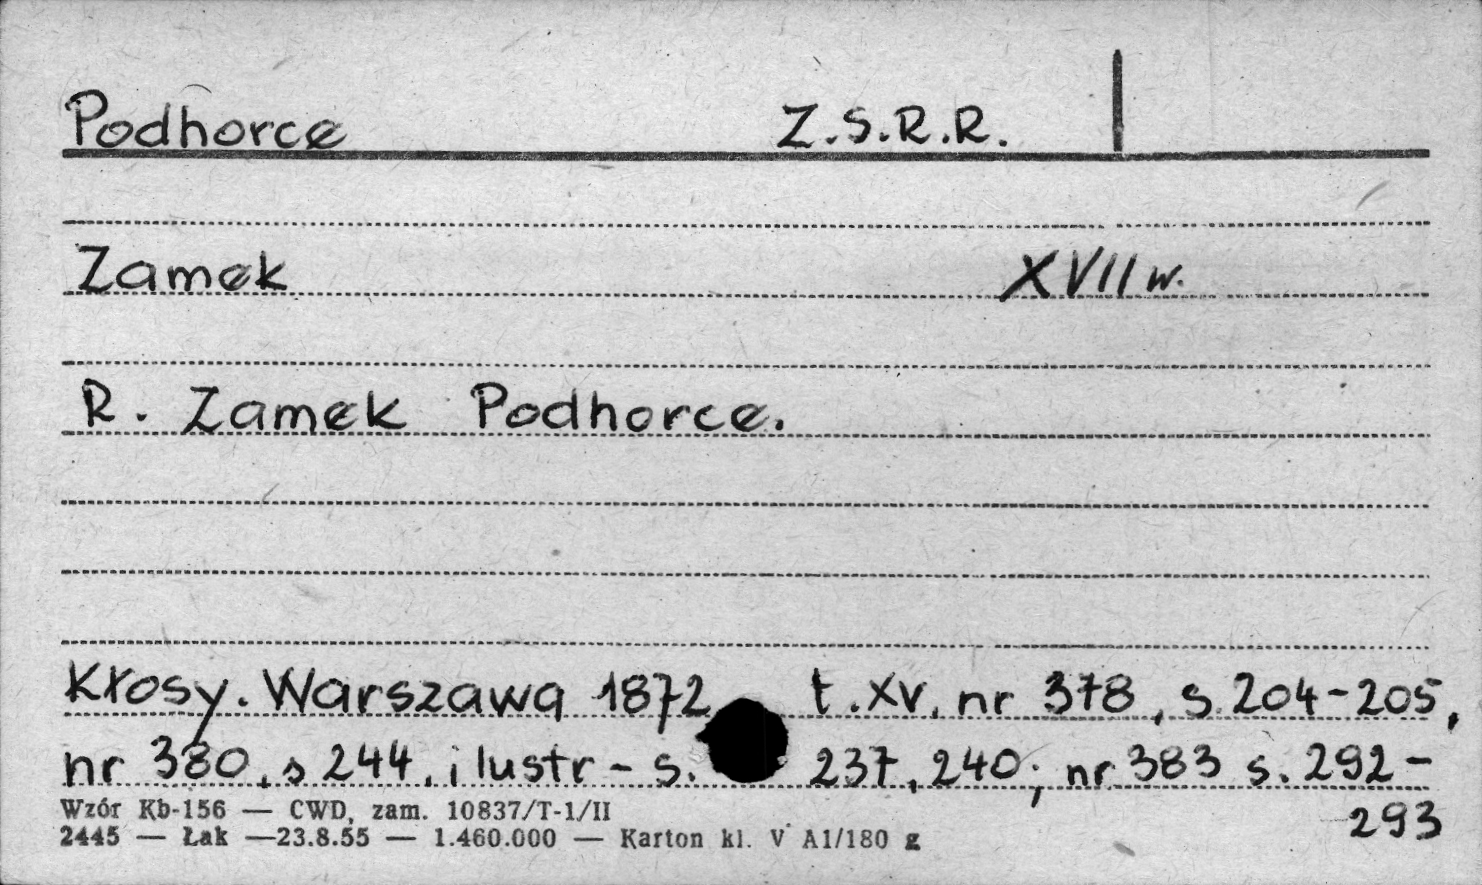 Podhorce Z.S.R.R.
Zamek XVII w.
R. Zamek Podhorce.
Kłosy. Warszawa 1872 t.XV, nr 378, s.204-205,
nr 380, s 244, ilustr - s. 237, 240; nr 383 s. 292-
293
Wzór Kb-156 — CWD, zam. 10837/T-1/II
2445 — Łak —23.8.55 — 1.460.000 — Karton kl. V A1/180 g